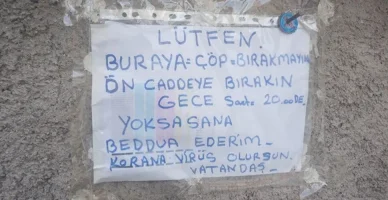 LÜTFEN.
BURAYA=ÇÖP=BIRAKMAYIN
ÖN CADDEYE BIRAKIN
GECE Saat 20.00DE.
YOKSA SANA
BEDDUA EDERİM-
KORANA VİRÜS OLURSUN.
VATANDAŞ-